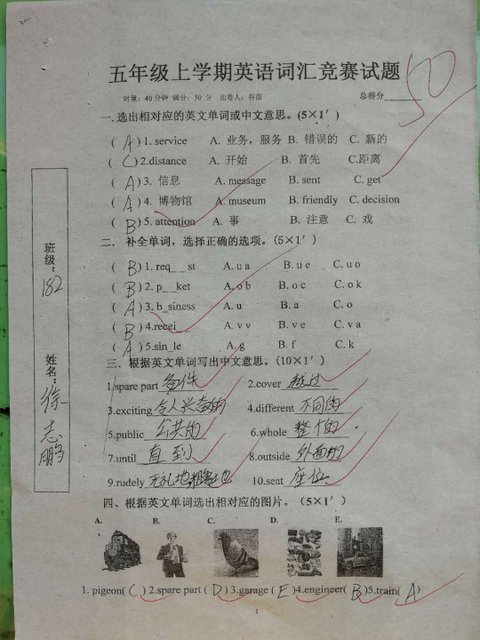 五年级上学期英语词汇竞赛试题
50
时量：40分钟 满分：50分 出卷人：谷蓓 总得分
一.选出相对应的英文单词或中文意思。(5×1′)
( A ) 1. service A. 业务，服务 B. 错误的 C. 新的
( C ) 2.distance A. 开始 B. 首先 C.距离
( A ) 3. 信息 A. message B. sent C. get
( A ) 4. 博物馆 A. museum B. friendly C. decision
( B ) 5. attention A. 事 B. 注意 C. 戏
二、补全单词，选择正确的选项。(5×1′)
( B ) 1. req_ _st A. u a B. u e C. u o
( B ) 2. p_ _ket A.o b B. o c C. o k
( A ) 3. b_siness A. u B. a C. o
( B ) 4.recei_ _ A. v v B. v e C. v a
( A ) 5.sin_le A. g B. f C. k
三、根据英文单词写出中文意思。(10×1′)
1.spare part 备件 2.cover 越过
3.exciting 令人兴奋的 4.different 不同的
5.public 公共的 6.whole 整个的
7.until 直到 8.outside 外面的
9.rudely 无礼地 粗鲁地 10.seat 座位
四、根据英文单词选出相对应的图片。(5×1′)
A. B. C. D. E.
1. pigeon( C ) 2.spare part ( D ) 3.garage ( E ) 4.engineer( B ) 5.train( A )
1
班级：182
姓名：徐志鹏